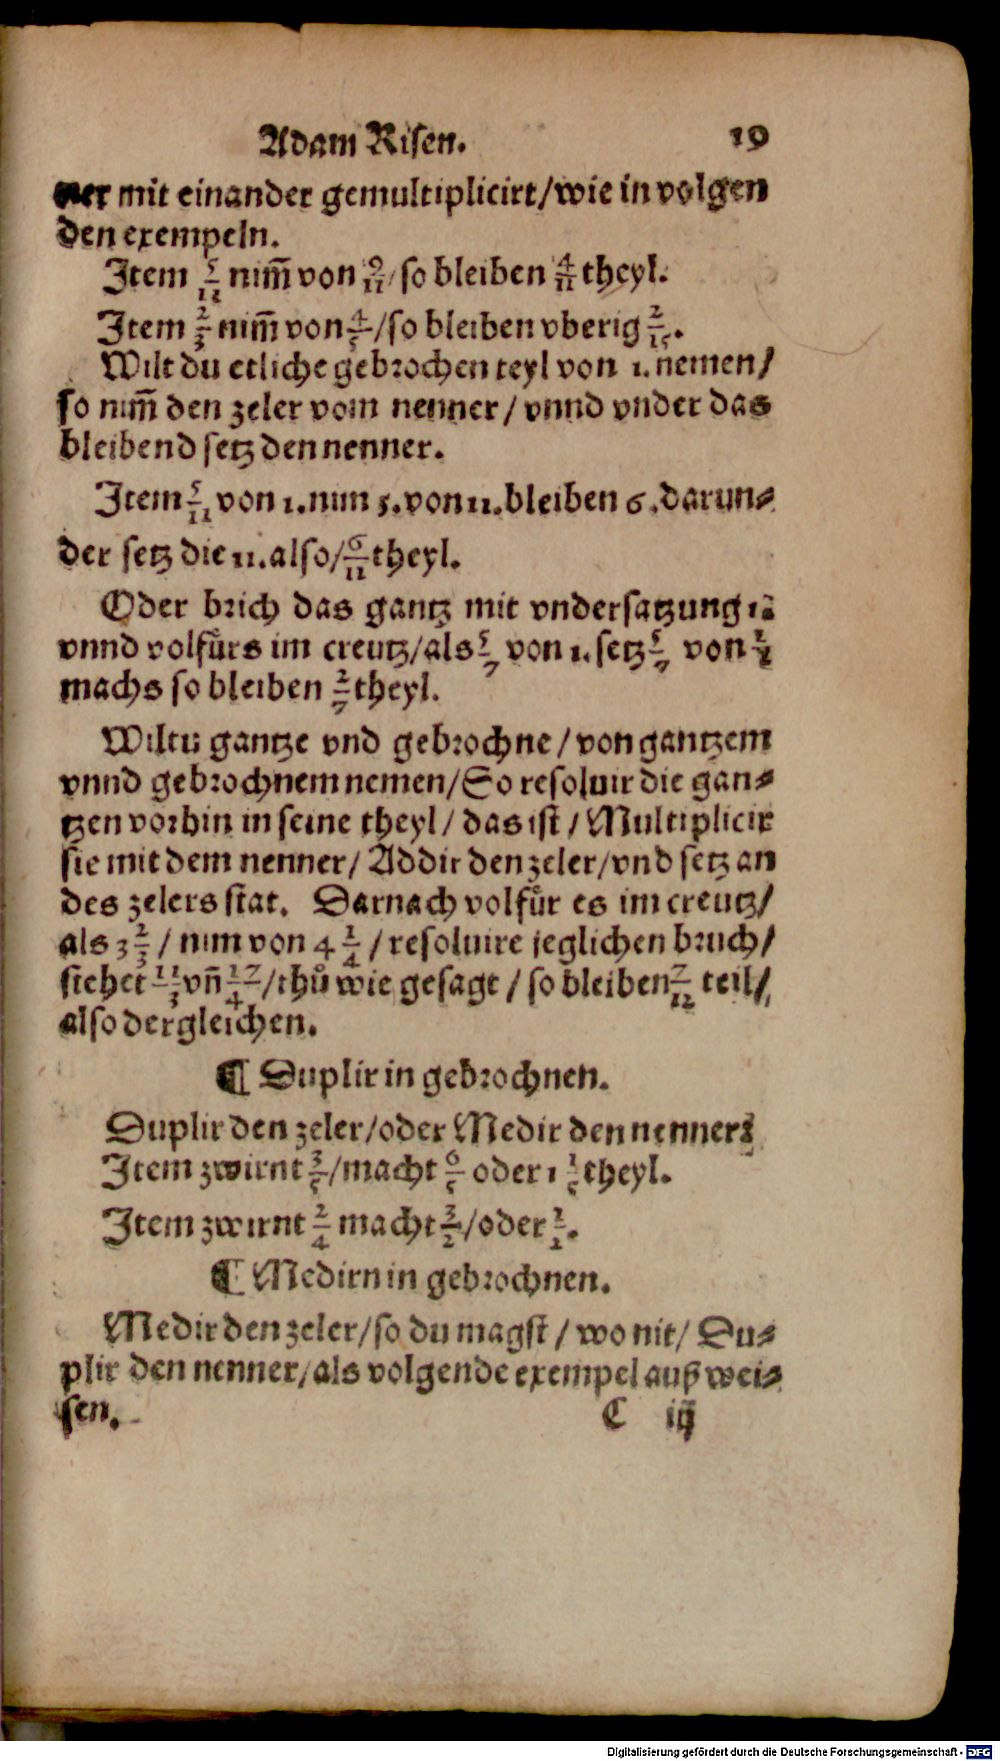 Adam Risen. 19
ner mit einander gemultiplicirt/wie in volgen
den exempeln.
Item 5/11 nim̃ von 9/11/so bleiben 4/11 theyl.
Item 2/3 nim̃ von 4/5/so bleiben vberig 2/15.
Wilt du etliche gebrochen teyl von 1. nemen/
so nim̃ den zeler vom nenner/ vnnd vnder das
bleibend setz den nenner.
Item 5/11 von 1. nim 5. von 11. bleiben 6. darun⸗
der setz die 11. also/6/11 theyl.
Oder brich das gantz mit vndersatzung 1.
vnnd volfuͤrs im creutz/als 5/7 von 1. setz 5/7 von 1/1
machs so bleiben 2/7 theyl.
Wiltu gantze vnd gebrochne/von gantzem
vnnd gebrochnem nemen/So resoluir die gan⸗
tzen vorhin in seine theyl/ das ist/ Multiplicir
sie mit dem nenner/ Addir den zeler/vnd setz an
des zelers stat. Darnach volfuͤr es im creutz/
als 3 2/3 / nim von 4 1/4 / resoluire jeglichen bruch/
stehet 11/3 vñ 17/4/thuͦ wie gesagt/ so bleiben 7/12 teil/
also dergleichen.
¶ Duplir in gebrochnen.
Duplir den zeler/oder Medir den nenner:
Item zwirnt 3/5/macht 6/5 oder 1 1/5 theyl.
Item zwirnt 2/4 macht 2/2/oder 1/1.
¶ Medirn in gebrochnen.
Medir den zeler/so du magst/ wo nit/ Du⸗
plir den nenner/als volgende exempel auß wei⸗
sen.
C iij
Digitalisierung gefördert durch die Deutsche Forschungsgemeinschaft - DFG